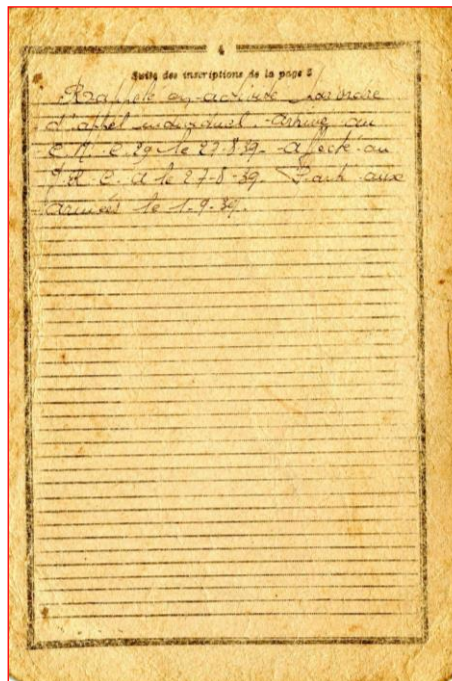 4
Suite des inscriptions de la page 3
Rappelé en activité par ordre
d'appel individuel. Arrivé au
C. M. C. 29 le 27.8.39. affecté au
R. C. A le 27-8-39. Parti aux
armées le 1-9-39.